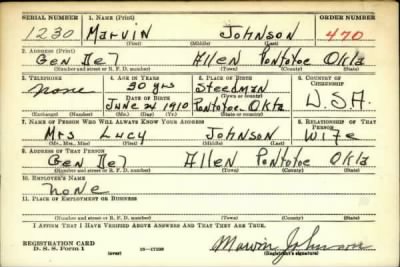 SERIAL NUMBER 1. NAME (Print) ORDER NUMBER
1230 Marvin Johnson 470
(First) (Middle) (Last)
2. ADDRESS (Print)
Gen Del Allen Pontotoc Okla
(Number and street or R. F. D. number) (Town) (County) (State)
3. TELEPHONE 4. AGE IN YEARS 5. PLACE OF BIRTH 6. COUNTRY OF CITIZENSHIP
none 30 yrs Steedman U.S.A.
DATE OF BIRTH (Town) (County)
June 1910 Pontotoc Okla
(Exchange) (Number) (Mo.) (Day) (Yr.) (State)
7. NAME OF PERSON WHO WILL ALWAYS KNOW YOUR ADDRESS 8. RELATIONSHIP OF THAT PERSON
Mrs Lucy Johnson Wife
(Mr., Mrs., Miss) (First) (Middle) (Last)
9. ADDRESS OF THAT PERSON
Gen Del Allen Pontotoc Okla
(Number and street or R. F. D. number) (Town) (County) (State)
10. EMPLOYER'S NAME
none
11. PLACE OF EMPLOYMENT OR BUSINESS
(Number and street or R. F. D. number) (Town) (County) (State)
I AFFIRM THAT I HAVE VERIFIED ABOVE ANSWERS AND THAT THEY ARE TRUE.
REGISTRATION CARD
D. S. S. Form 1 (over) 16—17105 Marvin Johnson
(Registrant's signature)